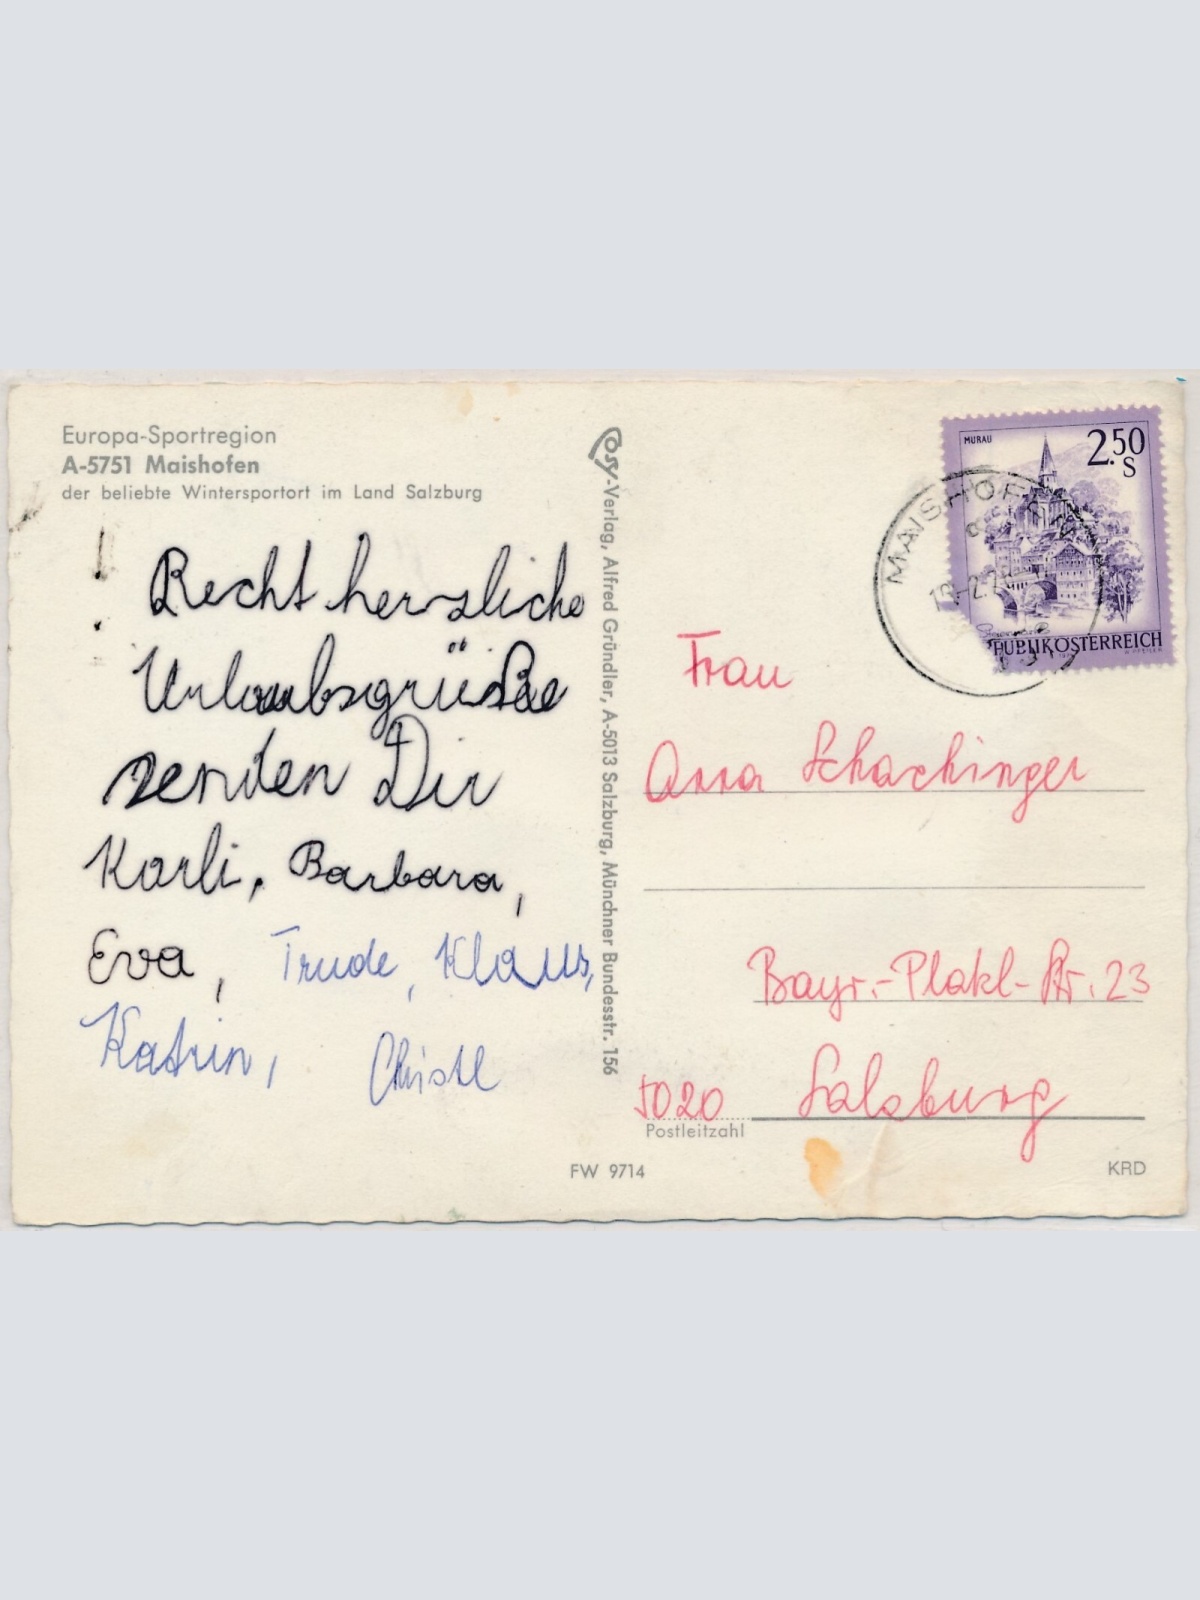 Europa-Sportregion
A-5751 Maishofen
der beliebte Wintersportort im Land Salzburg
Recht herzliche
Urlaubsgrüße
senden Dir
Karli, Barbara,
Eva, Trude, Klaus,
Katrin, Christl
Posy-Verlag, Alfred Gründler, A-5013 Salzburg, Münchner Bundesstr. 156
MURAU
2.50
S
REPUBLIK ÖSTERREICH
MAISHOFEN
Frau
Anna Schachinger
Bayr.-Platzl-Str. 23
5020 Salzburg
Postleitzahl
FW 9714
KRD